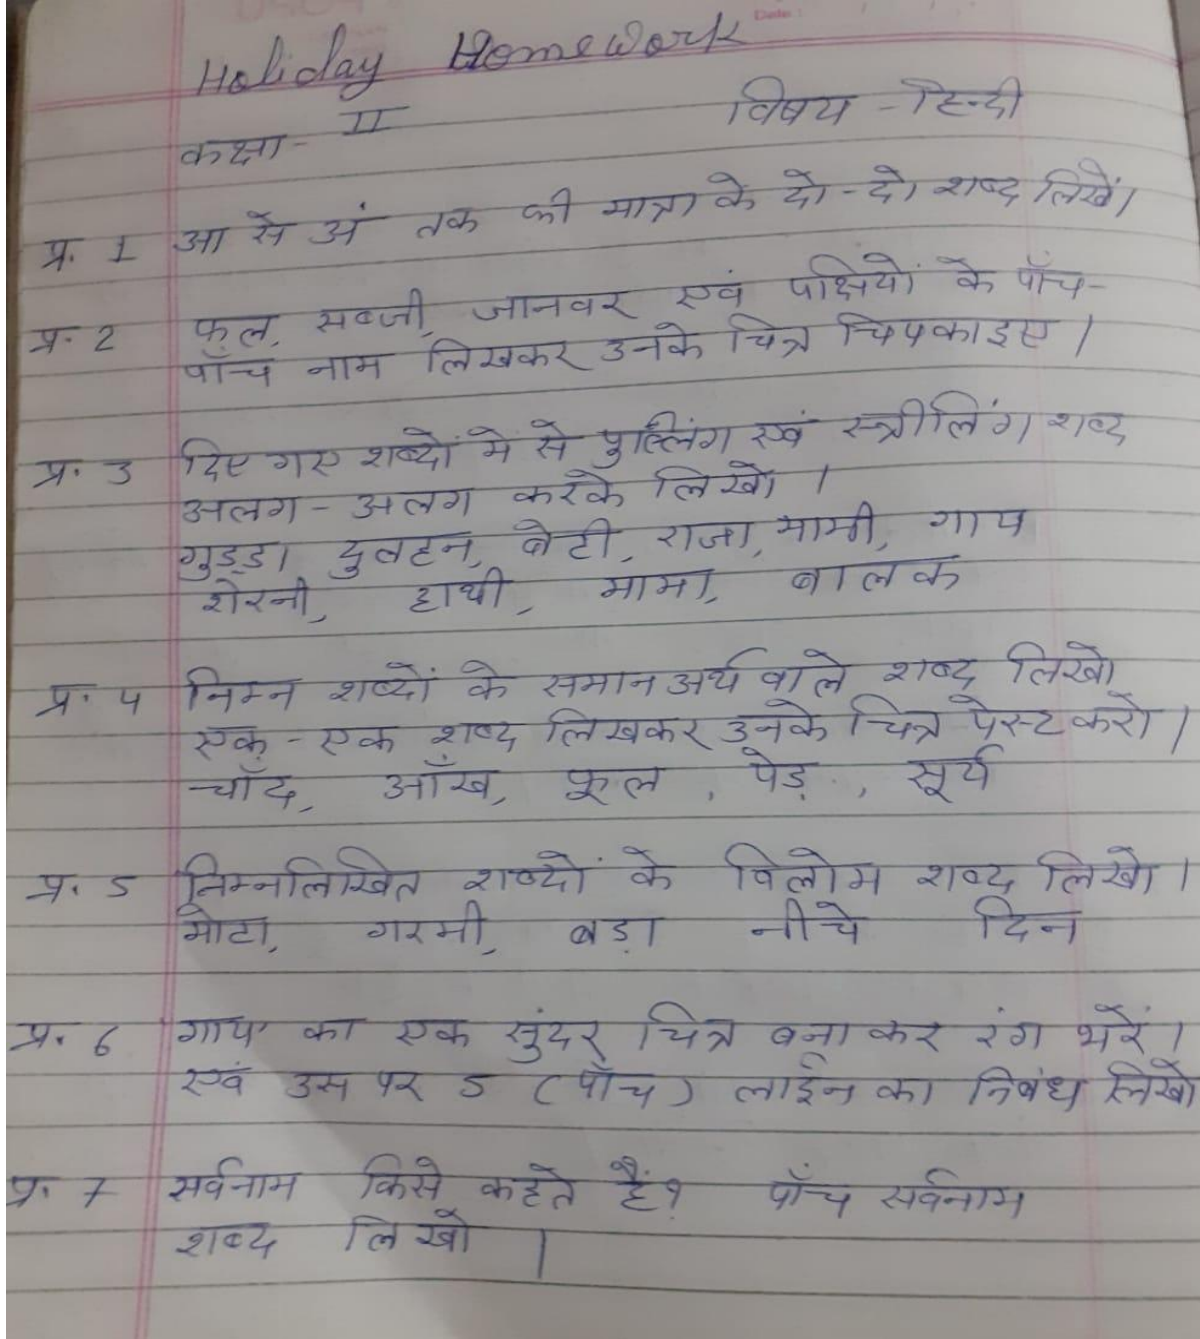 Date :
Holiday Homework
कक्षा- II विषय - हिन्दी
प्र. 1 आ से अं तक की मात्रा के दो-दो शब्द लिखें।
प्र. 2 फूल, सब्जी, जानवर एवं पक्षियों के पाँच-
पाँच नाम लिखकर उनके चित्र चिपकाइए।
प्र. 3 दिए गए शब्दों में से पुल्लिंग एवं स्त्रीलिंग शब्द
अलग-अलग करके लिखो।
गुड्डा दुलहन, बेटी, राजा, मामी, गाय
शेरनी, हाथी, मामा, बालक
प्र. 4 निम्न शब्दों के समान अर्थ वाले शब्द लिखो
एक-एक शब्द लिखकर उनके चित्र पेस्ट करो।
चाँद, आँख, फूल, पेड़, सूर्य
प्र. 5 निम्नलिखित शब्दों के विलोम शब्द लिखो।
मोटा, गरमी, बड़ा नीचे दिन
प्र. 6 गाय का एक सुंदर चित्र बना कर रंग भरें।
एवं उस पर 5 (पाँच) लाईन का निबंध लिखो
प्र. 7 सर्वनाम किसे कहते हैं? पाँच सर्वनाम
शब्द लिखो।